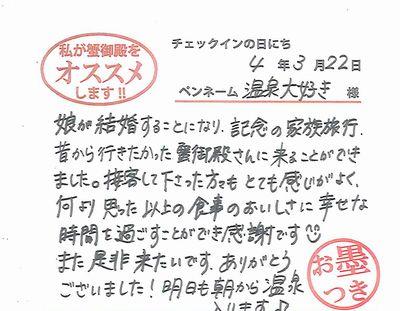 私が蟹御殿を
オススメ
します!!
チェックインの日にち
4 年 3 月 22 日
ペンネーム 温泉大好き 様
娘が結婚することになり、記念の家族旅行。
昔から行きたかった蟹御殿さんに来ることができ
ました。接客して下さった方々も とても感じがよく、
何より 思った以上の食事のおいしさに 幸せな
時間を過ごすことができ感謝です☺
また是非来たいです。ありがとう
ございました！明日も朝から温泉
入ります♪
お墨
つき